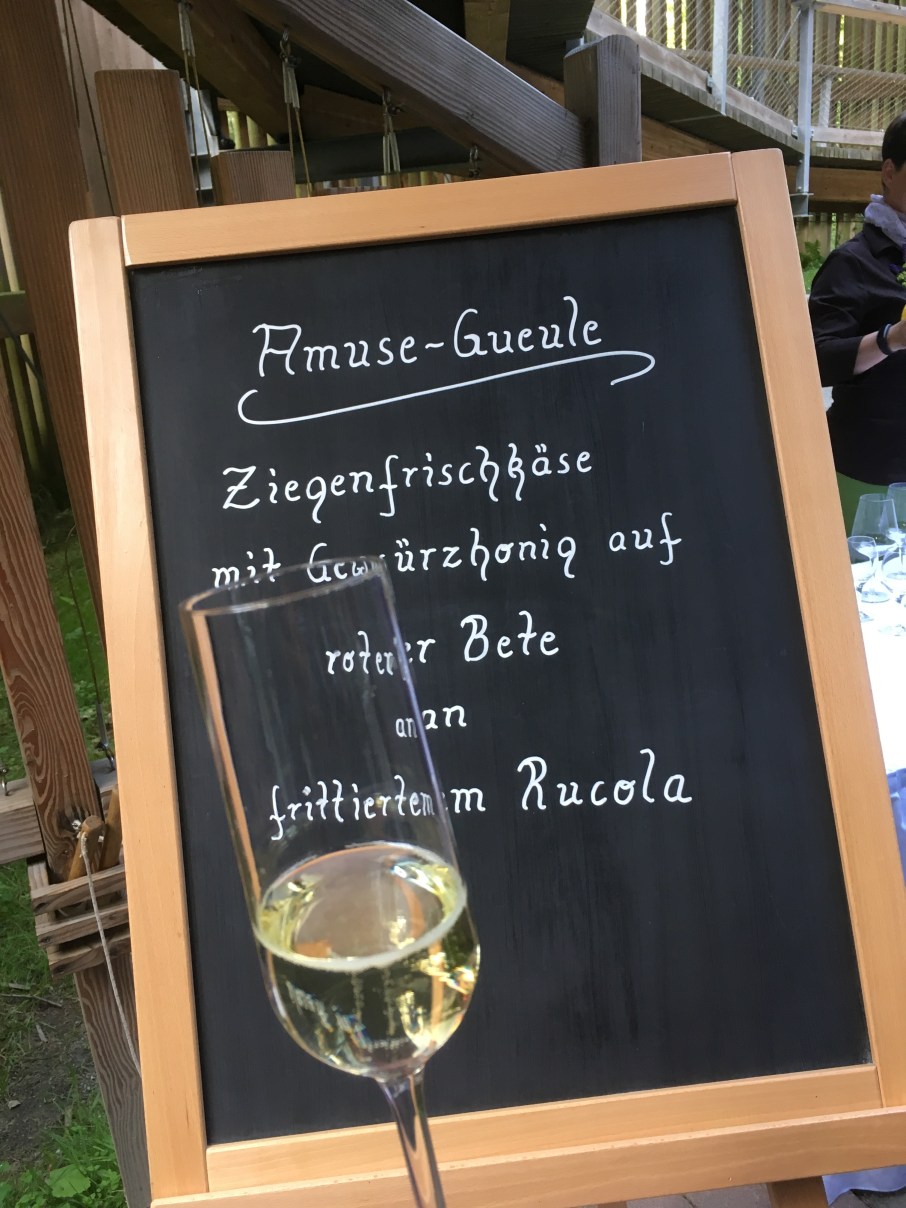 Amuse-Gueule
Ziegenfrischkäse
mit Gewürzhonig auf
roter Bete
an
frittiertem Rucola